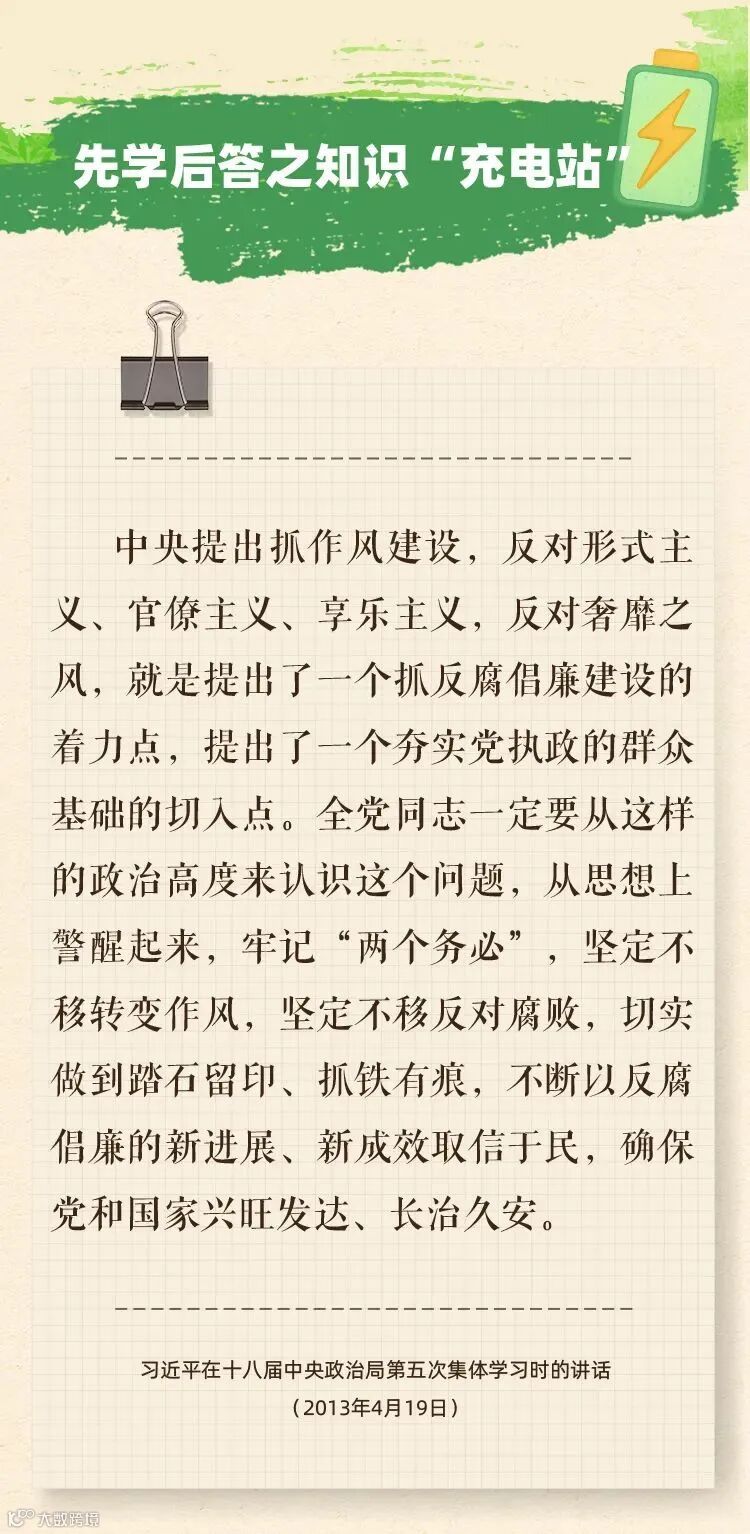 先学后答之知识“充电站”
中央提出抓作风建设，反对形式主
义、官僚主义、享乐主义，反对奢靡之
风，就是提出了一个抓反腐倡廉建设的
着力点，提出了一个夯实党执政的群众
基础的切入点。全党同志一定要从这样
的政治高度来认识这个问题，从思想上
警醒起来，牢记“两个务必”，坚定不
移转变作风，坚定不移反对腐败，切实
做到踏石留印、抓铁有痕，不断以反腐
倡廉的新进展、新成效取信于民，确保
党和国家兴旺发达、长治久安。
习近平在十八届中央政治局第五次集体学习时的讲话
（2013年4月19日）
大数跨境